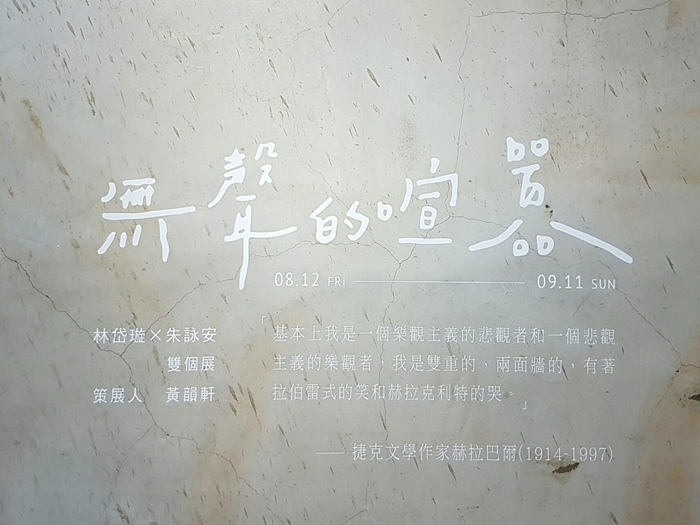 無聲的喧囂
08.12 FRI — 09.11 SUN
林岱璇×朱詠安
雙個展
策展人 黃韻軒
「基本上我是一個樂觀主義的悲觀者和一個悲觀
主義的樂觀者，我是雙重的、兩面牆的，有著
拉伯雷式的笑和赫拉克利特的哭。」
—— 捷克文學作家赫拉巴爾(1914-1997)